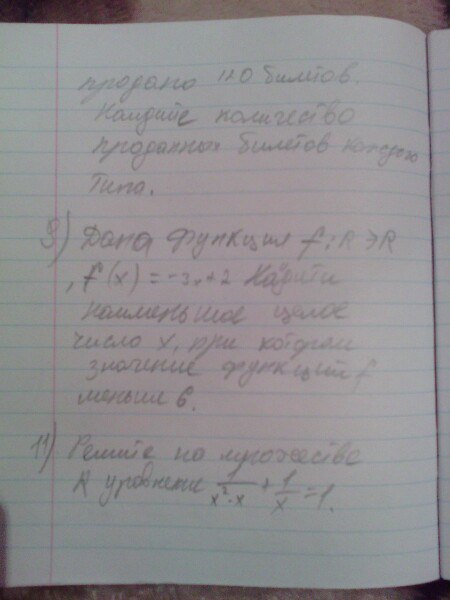 продано 120 билетов.
Найдите количество
проданных билетов каждого
типа.
9) Дана функция f: R → R
, f(x) = -3x+2 Найдити
наименьшое целое
число x, при котором
значение функций f
меньше 6.
11) Решите на множестве
R уравнение 1/(x²-x) + 1/x = 1.